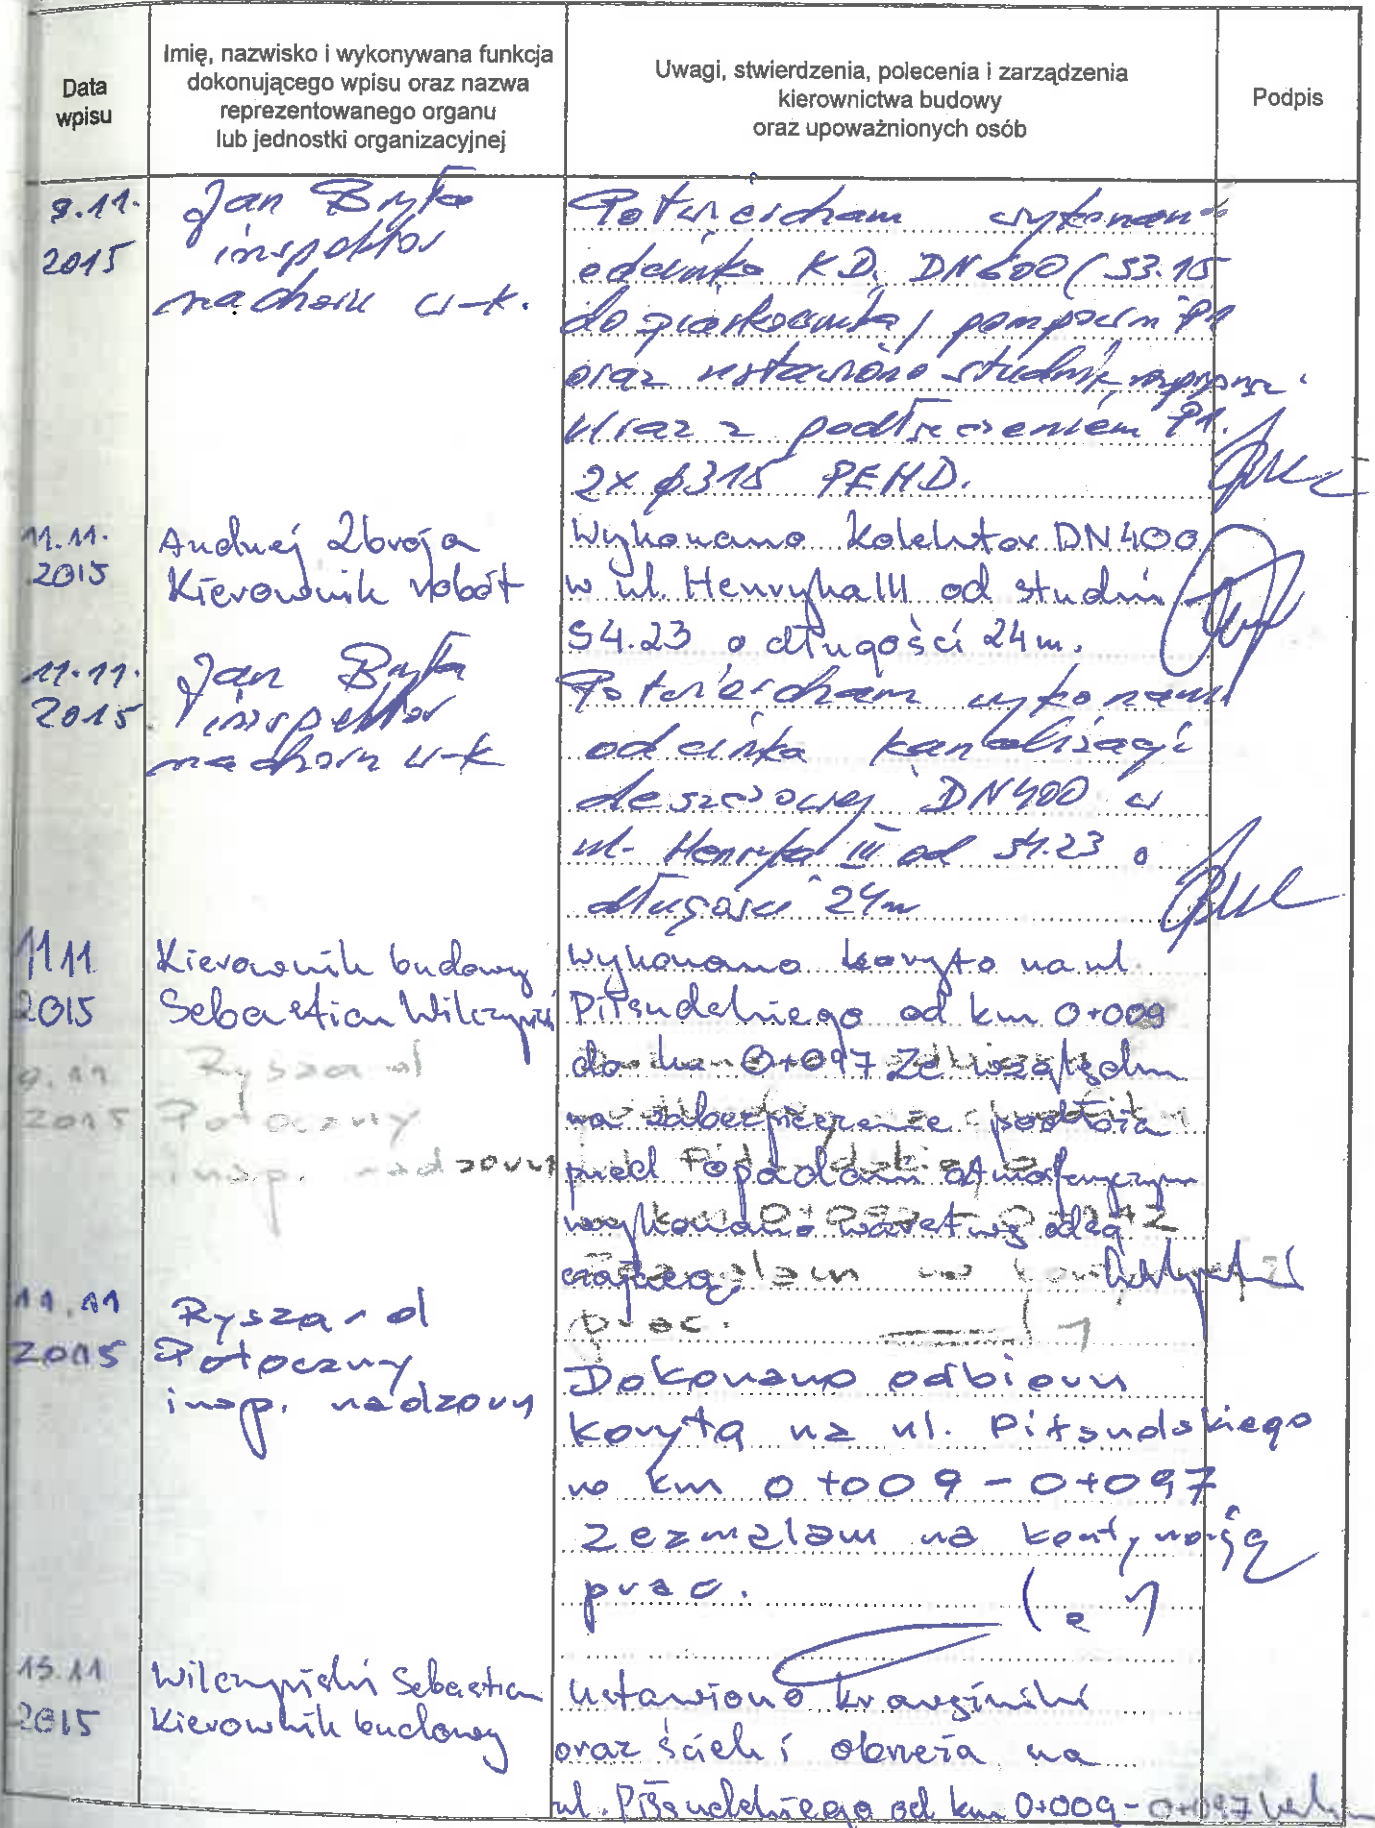 Data
wpisu
Imię, nazwisko i wykonywana funkcja
dokonującego wpisu oraz nazwa
reprezentowanego organu
lub jednostki organizacyjnej
Uwagi, stwierdzenia, polecenia i zarządzenia
kierownictwa budowy
oraz upoważnionych osób
Podpis
9.11.
2015
Jan Bryła
inspektor
nadzoru w-k.
Potwierdzam wykonanie
odcinka K.D. DN600 (S3.15
do piaskownika / pompowni P1
oraz ustawiono studnię
wraz z podłączeniem P1.
2x ø315 PEHD.
11.11.
2015
Andrzej Zbroja
Kierownik robót
Wykonano kolektor DN400
w ul. Henryka III od studni
S4.23 o długości 24m.
11.11.
2015
Jan Bryła
inspektor
nadzoru w-k
Potwierdzam wykonanie
odcinka kanalizacji
deszczowej DN400 w
ul. Henryka III od S4.23 o
długości 24m
11.11
2015
Kierownik budowy
Sebastian Wilczyński
Wykonano koryto na ul.
Piłsudskiego od km 0+009
do km 0+097 Ze względu
na zabezpieczenie podłoża
przed opadami atmosferycznymi
wykonano warstwę odcą
czającą
9.11
2015
Ryszard
Potoczny
insp. nadzoru
prac.
11.11
2015
Ryszard
Potoczny
insp. nadzoru
Dokonano odbioru
koryta na ul. Piłsudskiego
w km 0+009 - 0+097
Zezwalam na kontynuację
prac.
15.11
2015
Wilczyński Sebastian
Kierownik budowy
Ustawiono krawężniki
oraz ściek i obrzeża na
ul. Piłsudskiego od km 0+009 - 0+097